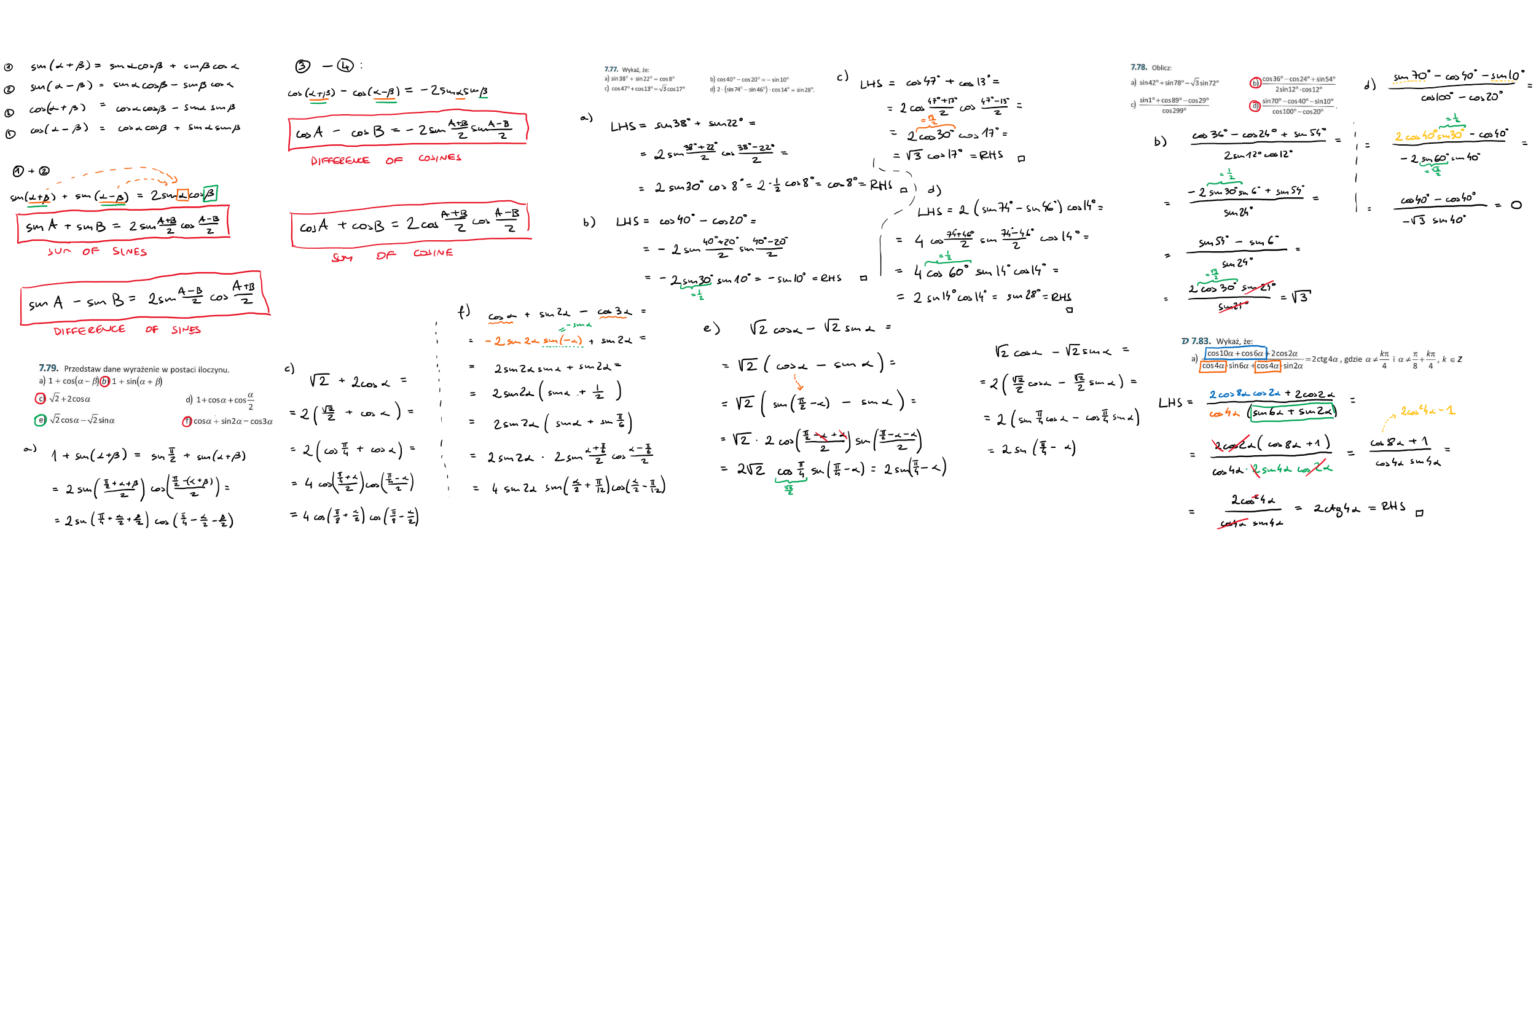 ① sin(α+β) = sinαcosβ + sinβcosα
② sin(α-β) = sinαcosβ - sinβcosα
③ cos(α+β) = cosαcosβ - sinα sinβ
④ cos(α-β) = cosαcosβ + sinαsinβ
① + ②
sin(α+β) + sin(α-β) = 2sinαcosβ
sin A + sin B = 2 sin (A+B)/2 cos (A-B)/2
SUM OF SINES
sin A - sin B = 2sin (A-B)/2 cos (A+B)/2
DIFFERENCE OF SINES
③ - ④:
cos(α+β) - cos(α-β) = -2sinαsinβ
cosA - cosB = -2sin (A+B)/2 sin (A-B)/2
DIFFERENCE OF COSINES
cosA + cosB = 2cos (A+B)/2 cos (A-B)/2
SUM OF COSINE
7.79. Przedstaw dane wyrażenie w postaci iloczynu.
a) 1 + cos(α-β) b) 1 + sin(α+β)
c) √2+2cosα d) 1+cosα+cos α/2
e) √2cosα-√2sinα f) cosα+sin2α-cos3α
a) 1 + sin(α+β) = sin π/2 + sin(α+β)
= 2 sin((π/2+α+β)/2) cos((π/2-(α+β))/2) =
= 2sin(π/4+α/2+β/2) cos(π/4-α/2-β/2)
c) √2 + 2cosα =
= 2(√2/2 + cosα) =
= 2(cos π/4 + cosα) =
= 4 cos((π/4+α)/2)cos((π/4-α)/2)
= 4cos(π/8+α/2) cos(π/8-α/2)
f) cosα + sin2α - cos3α =
= -sinα
= -2sin2α sin(-α) + sin2α =
= 2sin2αsinα + sin2α =
= 2sin2α(sinα + 1/2)
= 2sin2α(sinα + sin π/6)
= 2sin2α · 2sin (α+π/6)/2 cos (α-π/6)/2
= 4 sin2α sin(α/2+π/12)cos(α/2-π/12)
7.77. Wykaż, że:
a) sin38° + sin22° = cos8° b) cos40° - cos20° = - sin10°
c) cos47° + cos13° = √3cos17° d) 2 · (sin74° - sin46°) · cos14° = sin28°.
a) LHS = sin38° + sin22° =
= 2 sin (38°+22°)/2 cos (38°-22°)/2 =
= 2 sin30° cos 8° = 2·1/2 cos8° = cos8° = RHS □
b) LHS = cos40° - cos20° =
= -2sin (40°+20°)/2 sin (40°-20°)/2
= -2sin30° sin10° = -sin10° = RHS □
= 1/2
c) LHS = cos47° + cos13° =
= 2cos (47°+13°)/2 cos (47°-13°)/2 =
= √3/2
= 2cos30° cos17° =
= √3 cos17° = RHS □
d)
LHS = 2(sin74° - sin46°)cos14° =
= 4 cos (74°+46°)/2 sin (74°-46°)/2 cos14° =
= 1/2
= 4 cos 60° sin14°cos14° =
= 2 sin14°cos14° = sin28° = RHS
□
e) √2 cosα - √2 sinα =
= √2 (cosα - sinα) =
= √2 (sin(π/2-α) - sinα) =
= √2 · 2 cos((π/2-α+α)/2) sin((π/2-α-α)/2)
= 2√2 cos π/4 sin(π/4-α) = 2sin(π/4-α)
√2/2
√2 cosα - √2sinα =
= 2(√2/2 cosα - √2/2 sinα) =
= 2(sin π/4 cosα - cos π/4 sinα)
= 2 sin(π/4-α)
7.78. Oblicz:
a) sin42°+sin78°-√3sin72° b) (cos36°-cos24°+sin54°)/(2sin12°·cos12°)
c) (sin1°+cos89°-cos29°)/cos299° d) (sin70°-cos40°-sin10°)/(cos100°-cos20°).
b) (cos36° - cos24° + sin54°)/(2sin12°cos12°) =
= 1/2
= (-2sin30°sin6° + sin54°)/sin24° =
= (sin54° - sin6°)/sin24° =
= √3/2
= (2cos30° sin24°)/sin24° = √3
d) (sin70° - cos40° - sin10°)/(cos100° - cos20°) =
= 1/2
= (2cos40°sin30° - cos40°)/(-2sin60°sin40°) =
= √3/2
= (cos40° - cos40°)/(-√3 sin40°) = 0
D 7.83. Wykaż, że:
a) (cos10α+cos6α+2cos2α)/(cos4α·sin6α+cos4α·sin2α) = 2ctg4α, gdzie α ≠ kπ/4 i α ≠ π/8 + kπ/4, k ∈ Z
LHS = (2cos8αcos2α + 2cos2α)/(cos4α (sin6α + sin2α)) =
2cos²4α-1
= (2cos2α(cos8α+1))/(cos4α·2sin4αcos2α) = (cos8α+1)/(cos4α sin4α) =
= (2cos²4α)/(cos4α sin4α) = 2ctg4α = RHS □